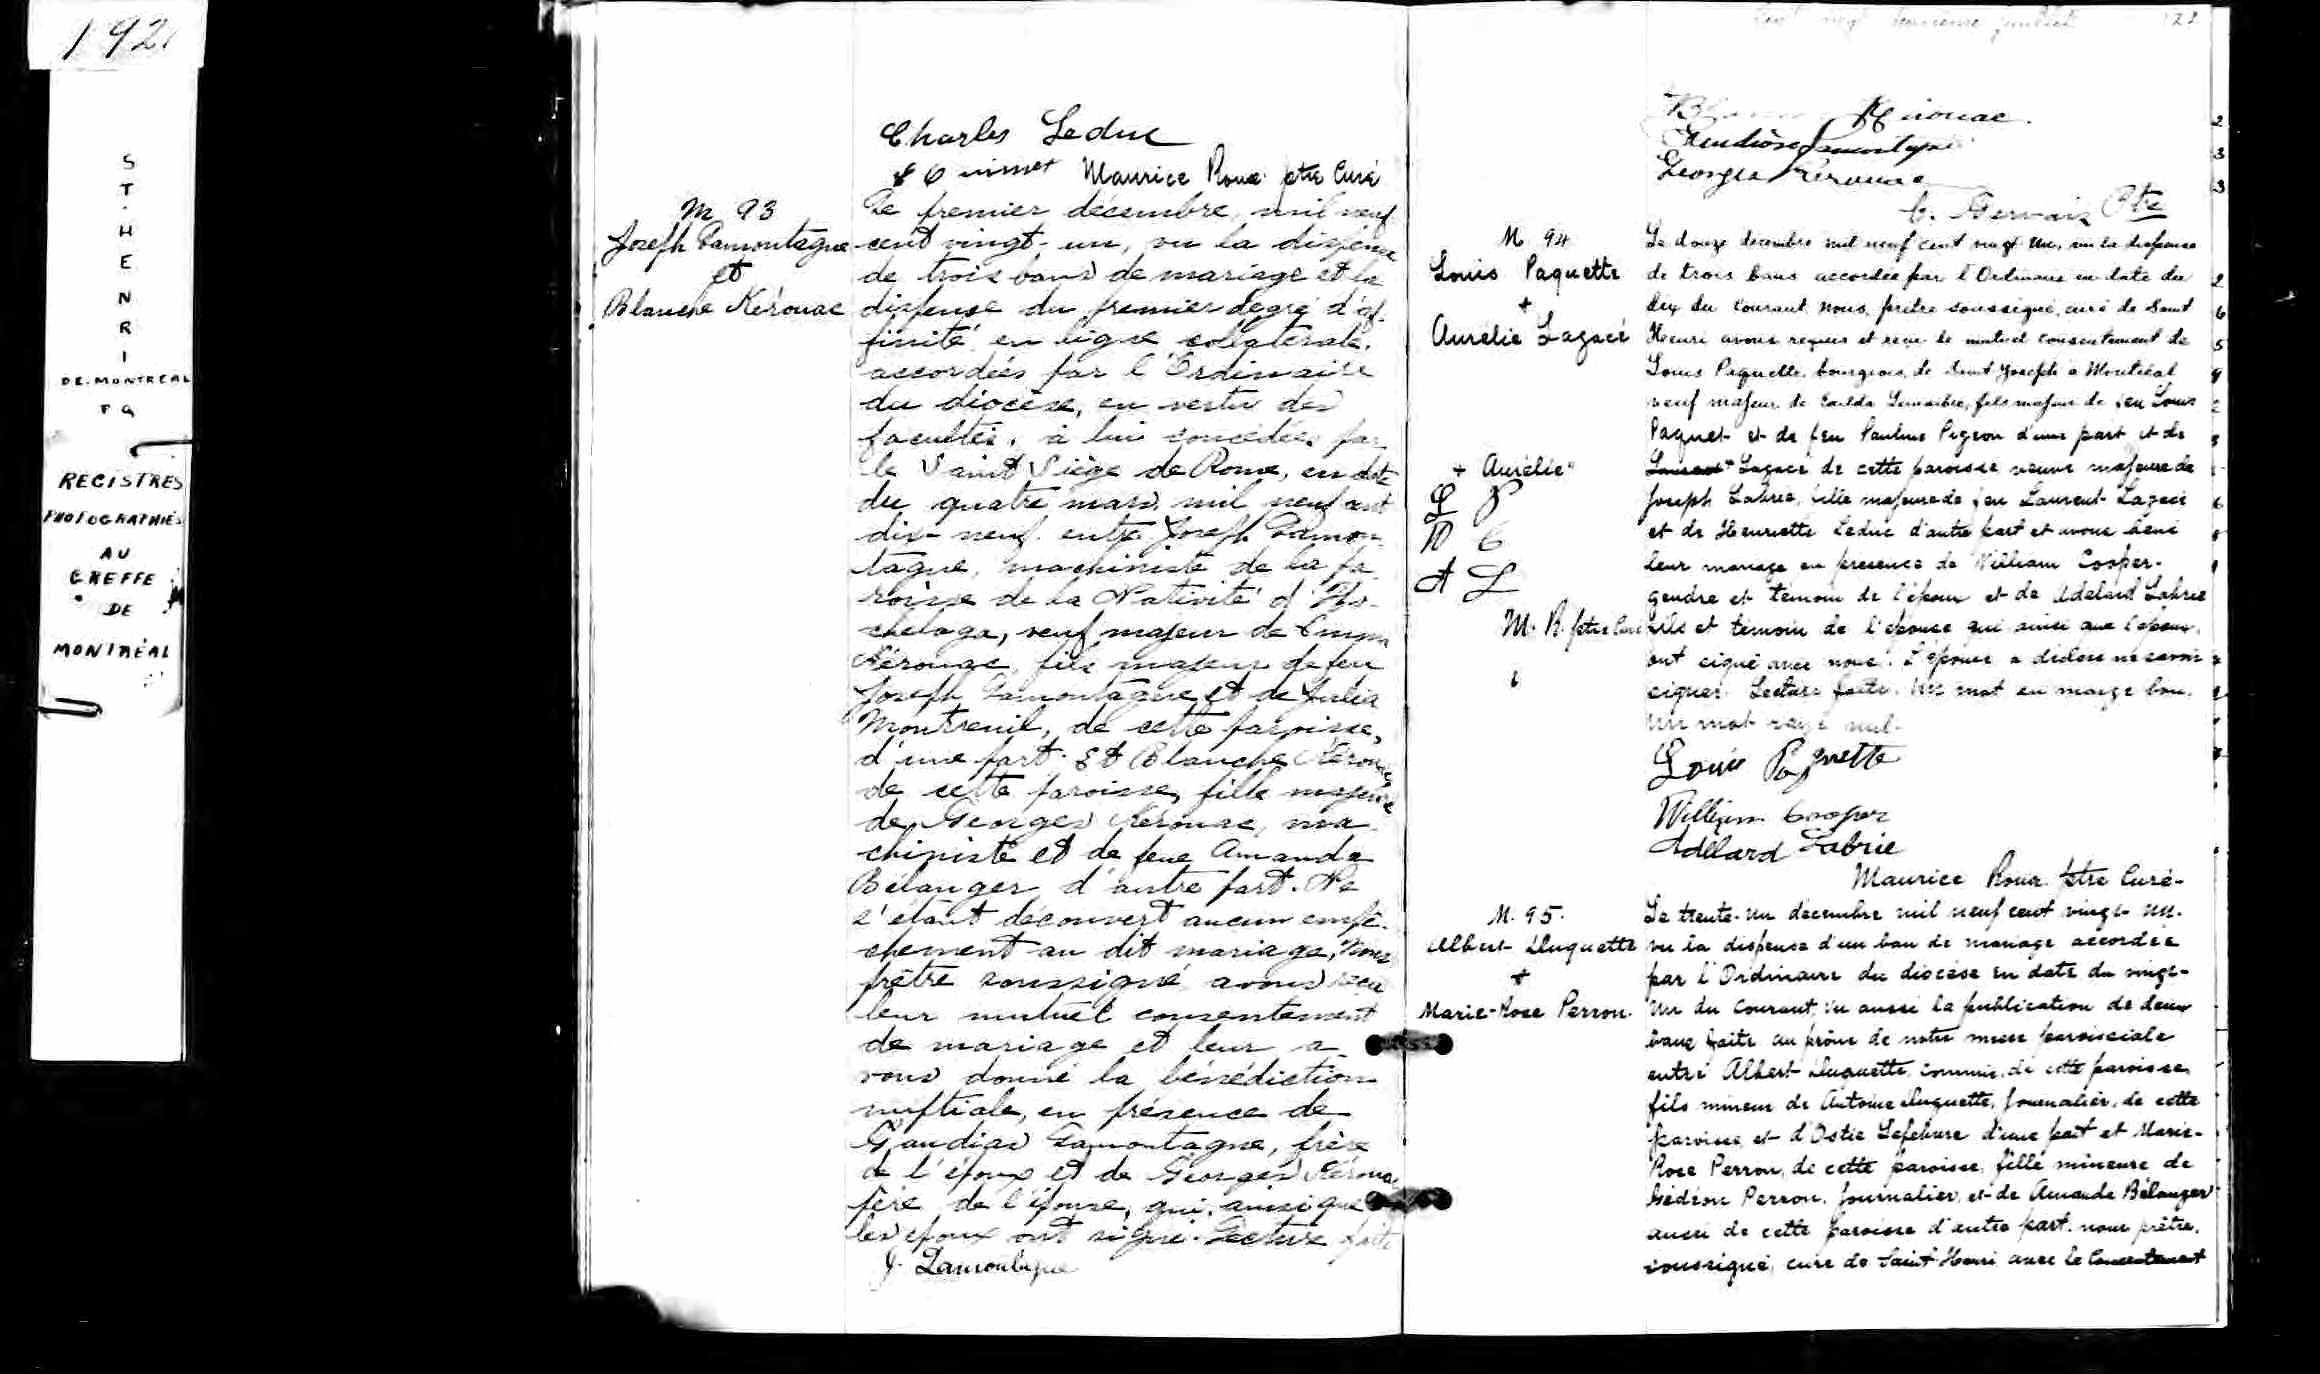 192
ST. HENRI
DE. MONTREAL
P Q
REGISTRES
PHOTOGRAPHIÉS
AU
GREFFE
DE
MONTRÉAL
Charles Leduc
Maurice Roux ptre Curé
M 93
Joseph Lamontagne
et
Blanche Kérouac
Le premier décembre, mil neuf
cent vingt-un, vu la dispense
de trois bans de mariage et la
dispense du premier degré d'af-
finité en ligne collatérale,
accordées par l'Ordinaire
du diocèse, en vertu des
facultés, à lui concédées par
le Saint Siège de Rome, en date
du quatre mars, mil neuf cent
dix-neuf entre Joseph Lamon-
tagne, machiniste de la pa-
roisse de la Nativité d'Ho-
chelaga, veuf majeur de Emma
Kérouac, fils majeur de feu
Joseph Lamontagne et de Julia
Montreuil, de cette paroisse,
d'une part. Et Blanche Kérouac,
de cette paroisse, fille majeure
de Georges Kérouac, ma-
chiniste et de feue Amanda
Bélanger d'autre part. Ne
s'étant découvert aucun empê-
chement au dit mariage, Nous
prêtre soussigné avons reçu
leur mutuel consentement
de mariage et leur a-
vons donné la bénédiction
nuptiale, en présence de
Gaudias Lamontagne, frère
de l'époux et de Georges Kérouac
père de l'épouse, qui, ainsi que
les époux ont signé. Lecture faite
J. Lamontagne
cent vingt
Kérouac.
Lamontagne
Georges Kérouac
Gervais Ptre
M 94
Louis Paquette
+
Aurélie Lagacé
Le douze décembre mil neuf cent vingt un, vu la dispense
de trois bans accordée par l'Ordinaire en date du
dix du courant, nous, prêtre soussigné, curé de Saint
Henri avons requis et reçu le mutuel consentement de
Louis Paquette, bourgeois, de Saint Joseph à Montréal
veuf majeur de Exilda Lemarbre, fils majeur de feu Louis
Paquet et de feu Pauline Pigeon d'une part et de
Laurent Lagacé de cette paroisse veuve majeure de
Joseph Labrie, fille majeure de feu Laurent Lagacé
et de Henriette Leduc d'autre part et avons béni
leur mariage en présence de William Cooper
gendre et témoin de l'époux et de Adélard Labrie
fils et témoin de l'épouse qui ainsi que l'époux,
ont signé avec nous. L'épouse a déclaré ne savoir
signer. Lecture faite. Un mot en marge bon.
Un mot rayé nul.
+ Aurélie"
L P
W C
A L
M. R. ptre Curé
Louis Paquette
William Cooper
Adélard Labrie
Maurice Roux ptre Curé-
M. 95.
Albert Duquette
+
Marie-Rose Perron.
Le trente-un décembre mil neuf cent vingt-un.
vu la dispense d'un ban de mariage accordée
par l'Ordinaire du diocèse en date du vingt-
un du courant, vu aussi la publication de deux
bans faite au prône de notre messe paroissiale
entre Albert Duquette, commis, de cette paroisse,
fils mineur de Antoine Duquette, journalier, de cette
paroisse et d'Ostie Lefebvre d'une part et Marie-
Rose Perron, de cette paroisse, fille mineure de
Gédéon Perron, journalier, et de Amanda Bélanger
aussi de cette paroisse d'autre part, nous prêtre,
soussigné, curé de Saint-Henri avec le consentement